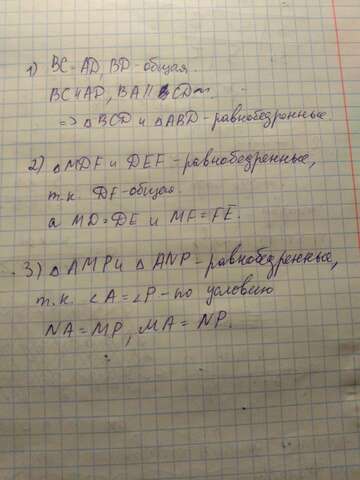 1) BC=AD, BD-общая.
BC и AD, BA || CD
=> △BCD и △ABD-равнобедронные.
2) △MDF и DEF-равнобедренные,
т.к. DF-общая.
а MD=DE и MF=FE.
3) △AMP и △ANP-равнобедренные,
т.к. ∠A=∠P-по условию
NA=MP, MA=NP.